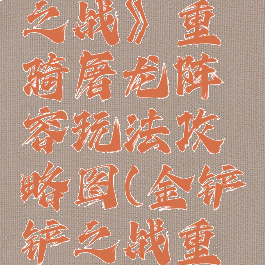 之战》重
骑屠龙阵
容玩法攻
略图(金铲
铲之战重